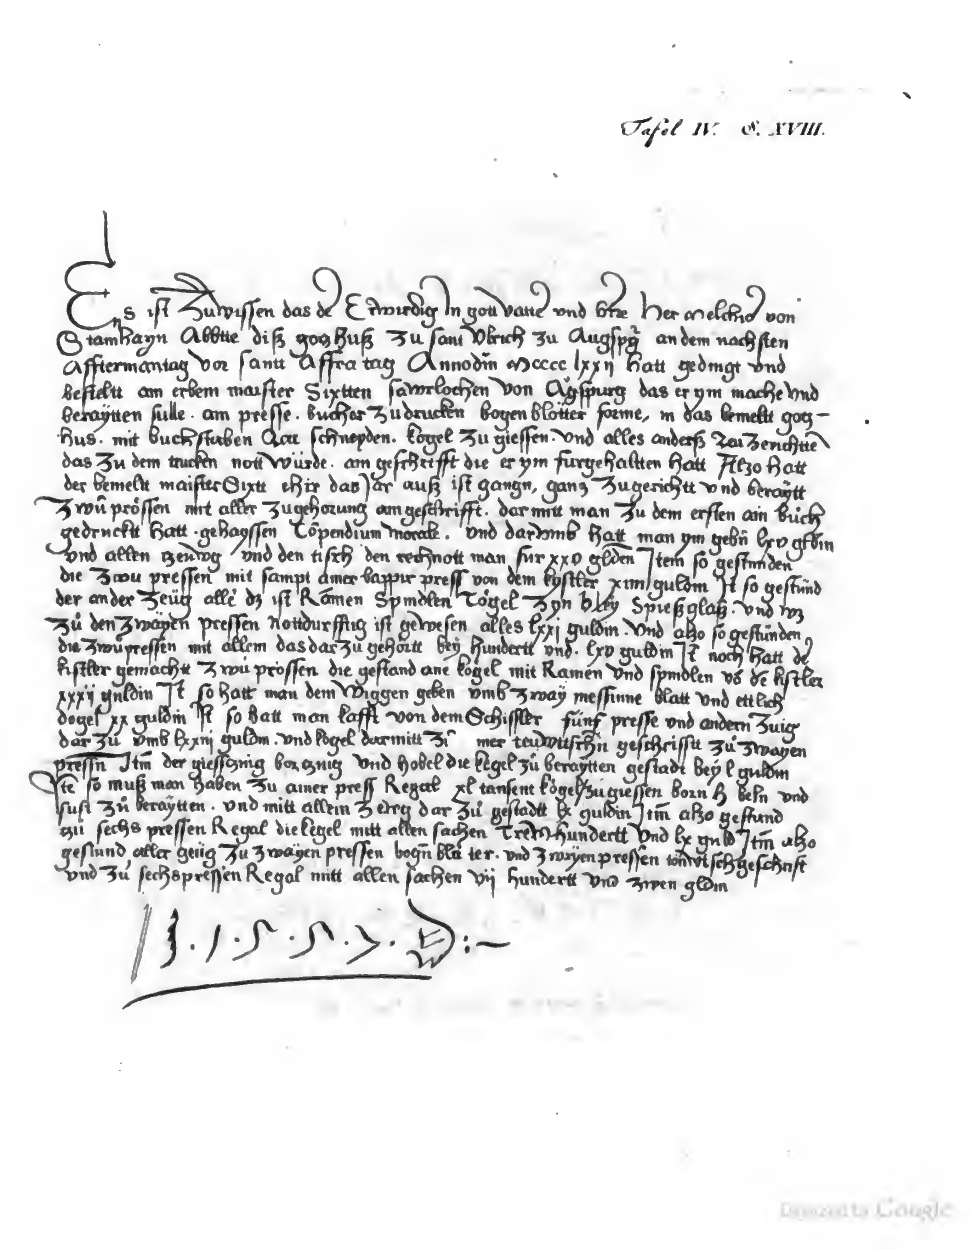 Tafel IV. S. XVIII.
Es ist Zuwissen das der Erwirdig In gott vatter und her melchior von
Stamhayn Abbtte diß goczhuß zu sant Ulrich zu Augspurg an dem nachsten
Afftermontag vor sannt Affra tag Annodm mcccc lxxij hatt gedingt vnd
bestelltt am erbern maister Sixtten sawrlochen von Augspurg das er ym mache vnd
beraÿtten sulle. am presse. bucher zu drucken bogen blötter forme, in das bemeltt gocz-
hus. mit buchstaben schneyden. kögel zu giessen. vnd alles anderß
das zu dem trucken nott würde. am geschrifft die er ym furgehaltten hatt Alzo hatt
der bemeltt maister Sixtt ehir das Jar auß ist gangn, gancz zugerichtt vnd beraÿtt
zwü prössen mit aller zugehorung am geschrifft. dar mitt man zu dem ersten ain buch
gedrucktt hatt. gehayssen Cōpendium morale. vnd darumb hatt man ym gebn lxv gldin
vnd allen zeuwg vnd den tisch den rechnott man fur xxv glden Item so gestunden
die zwu pressen mit sampt ainer bappir press von dem kystler xiiij guldin It so gestünd
der ander zeüg alle dz ist Ramen Spindlen Tögel zyn bleÿ Spießglaß. vnd wz
zü den zwaÿen pressen nottdurfftig ist gewesen alles lxxj guldin. vnd alzo so gestünden
die zwüpressen mit allem das dar zu gehortt beÿ hundertt vnd. lxv guldin It noch hatt der
kistler gemachtt zwü prössen die gestand ane kögel mit Ramen vnd spindlen
xxxij guldin It so hatt man dem Wiggen geben vmb zwaÿ messinne blatt vnd ettlich
dögel xx guldin It so hatt man kafft von dem Schissler fünf presse vnd andern zuig
dar zü vmb lxxiij guldin. vnd kögel darmitt mer geschrifftt zü zwayen
pressn Itm der giesszuig vnd hobel die kögel zü beraÿtten gestadt beÿ l guldin
Ite so muß man haben zu ainer press Regal xl tausent kögel zu giessen vnd
sust zü beraÿtten. vnd mitt allem dar zu gestadtt lx guldin Itm alzo gestund
zü sechs pressen Regal die kegel mitt allen sachen hundertt vnd lx guld Itm alzo
gestund aller zeüg zu zwaÿen pressen bogn blätter. vnd zwaÿen pressen geschrifft
vnd zü sechs pressen Regal mitt allen sachen vij hundertt vnd zwen gldin
Google